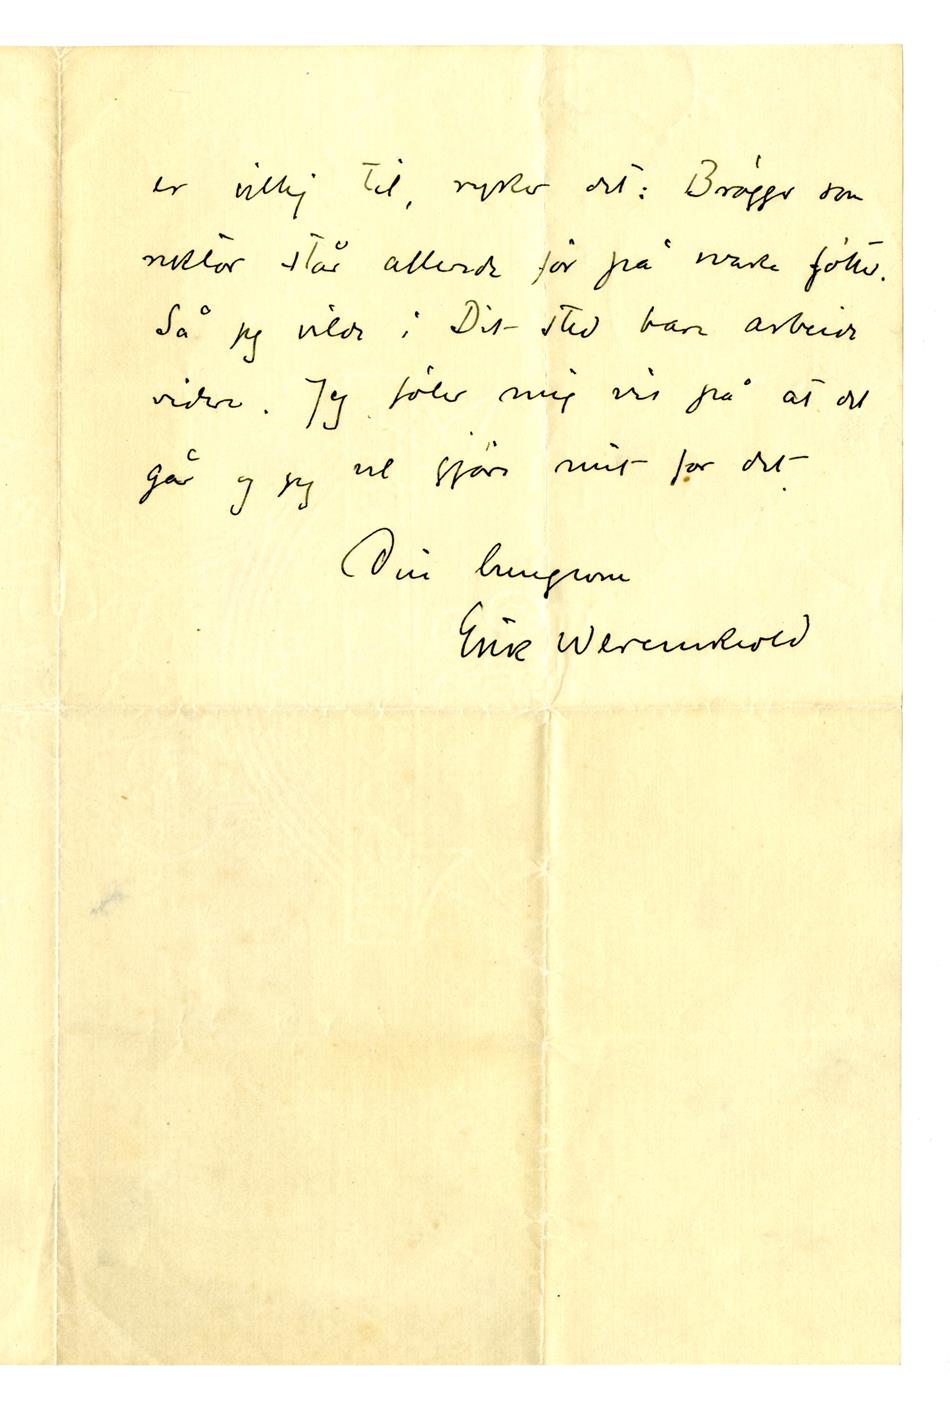 er villig til, ryker det: Brøgger som
rektor står allerede før på svake føtter.
Så jeg vilde i Dit sted bare arbeide
videre. Jeg føler mig vis på at det
går og jeg vil gjøre mit for det
Din hengivne
Erik Werenskiold